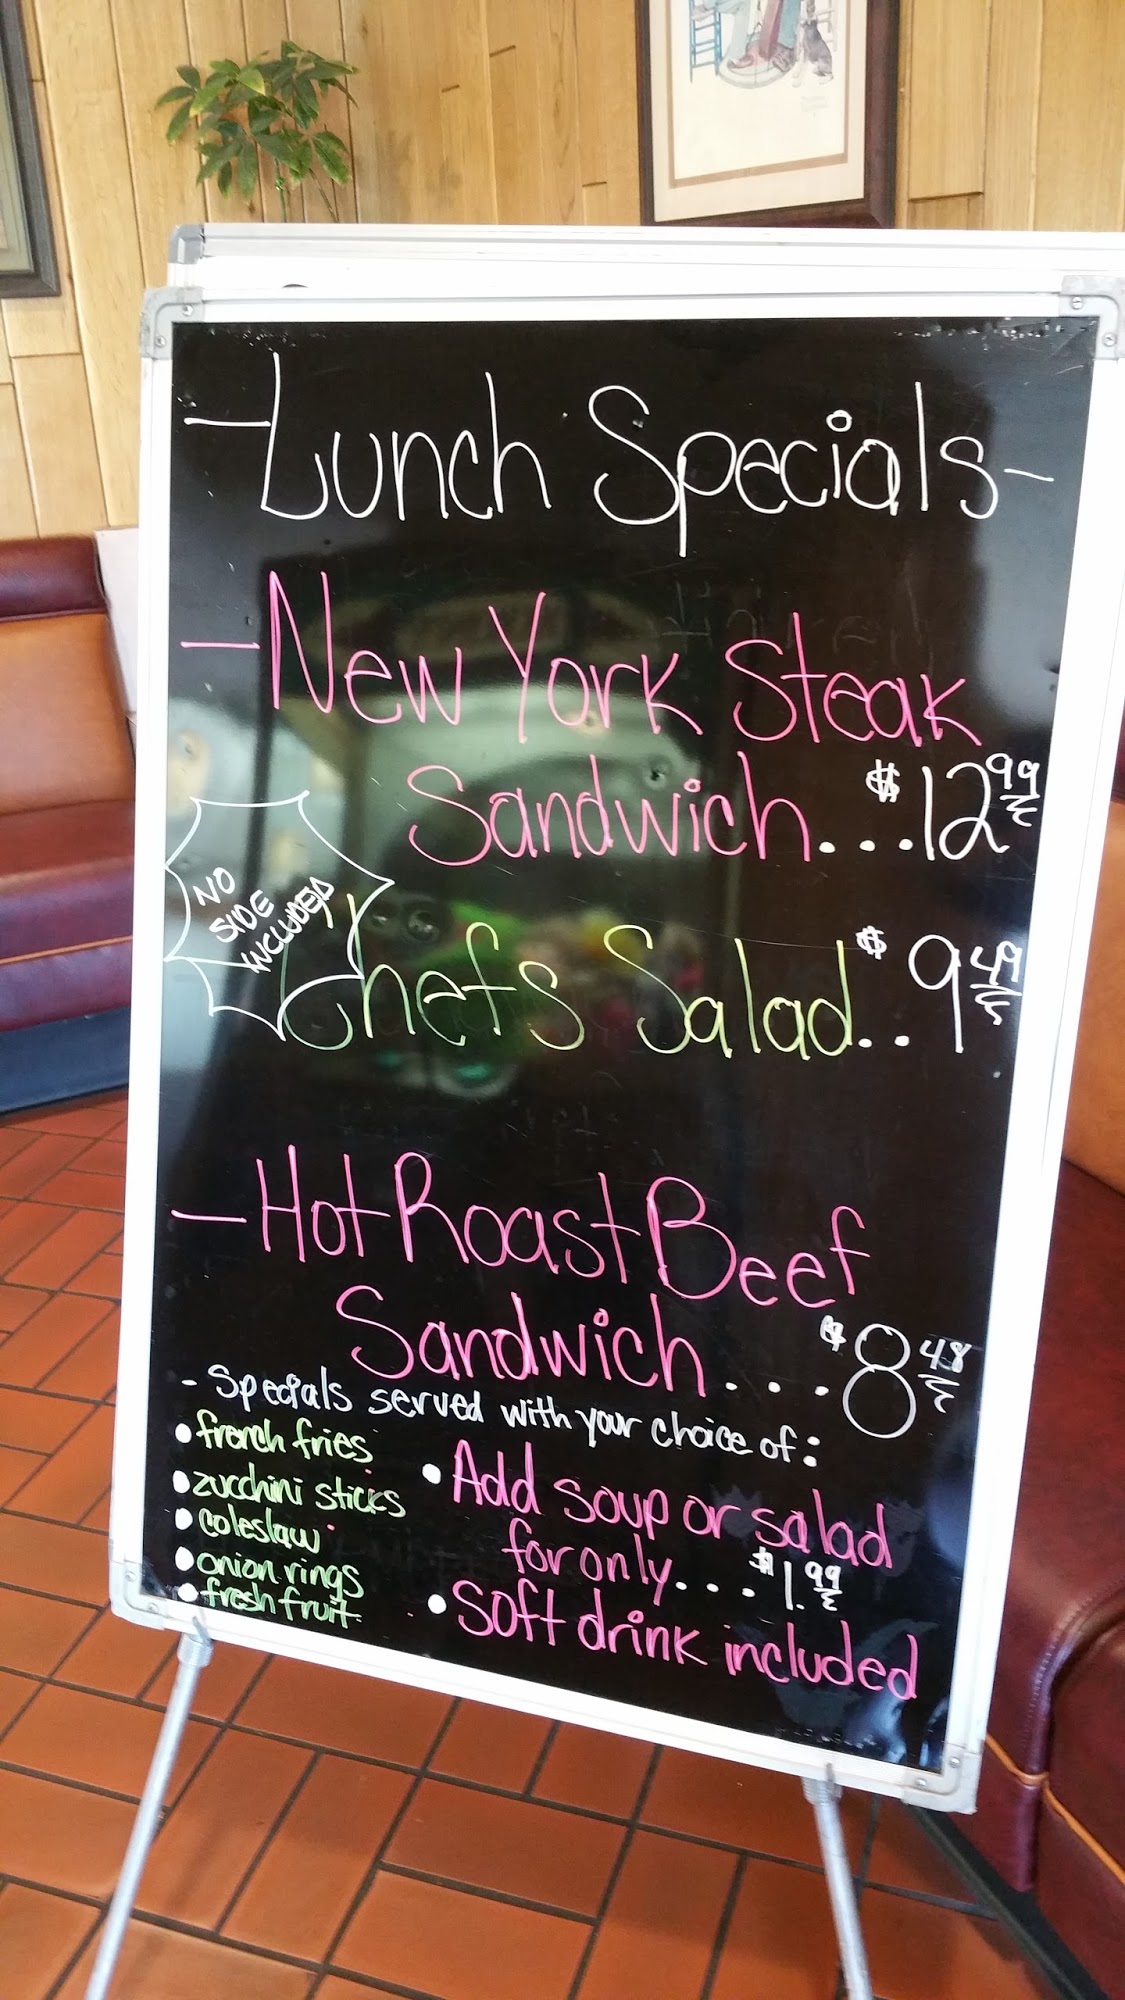 -Lunch Specials-
-New York Steak
Sandwich...$12.99
NO
SIDE
INCLUDED
Chefs Salad..$9.49
-Hot Roast Beef
Sandwich....$8.48
- Specials served with your choice of:
• french fries
• zucchini sticks
• coleslaw
• onion rings
• fresh fruit
• Add soup or salad
for only...$1.99
• Soft drink included